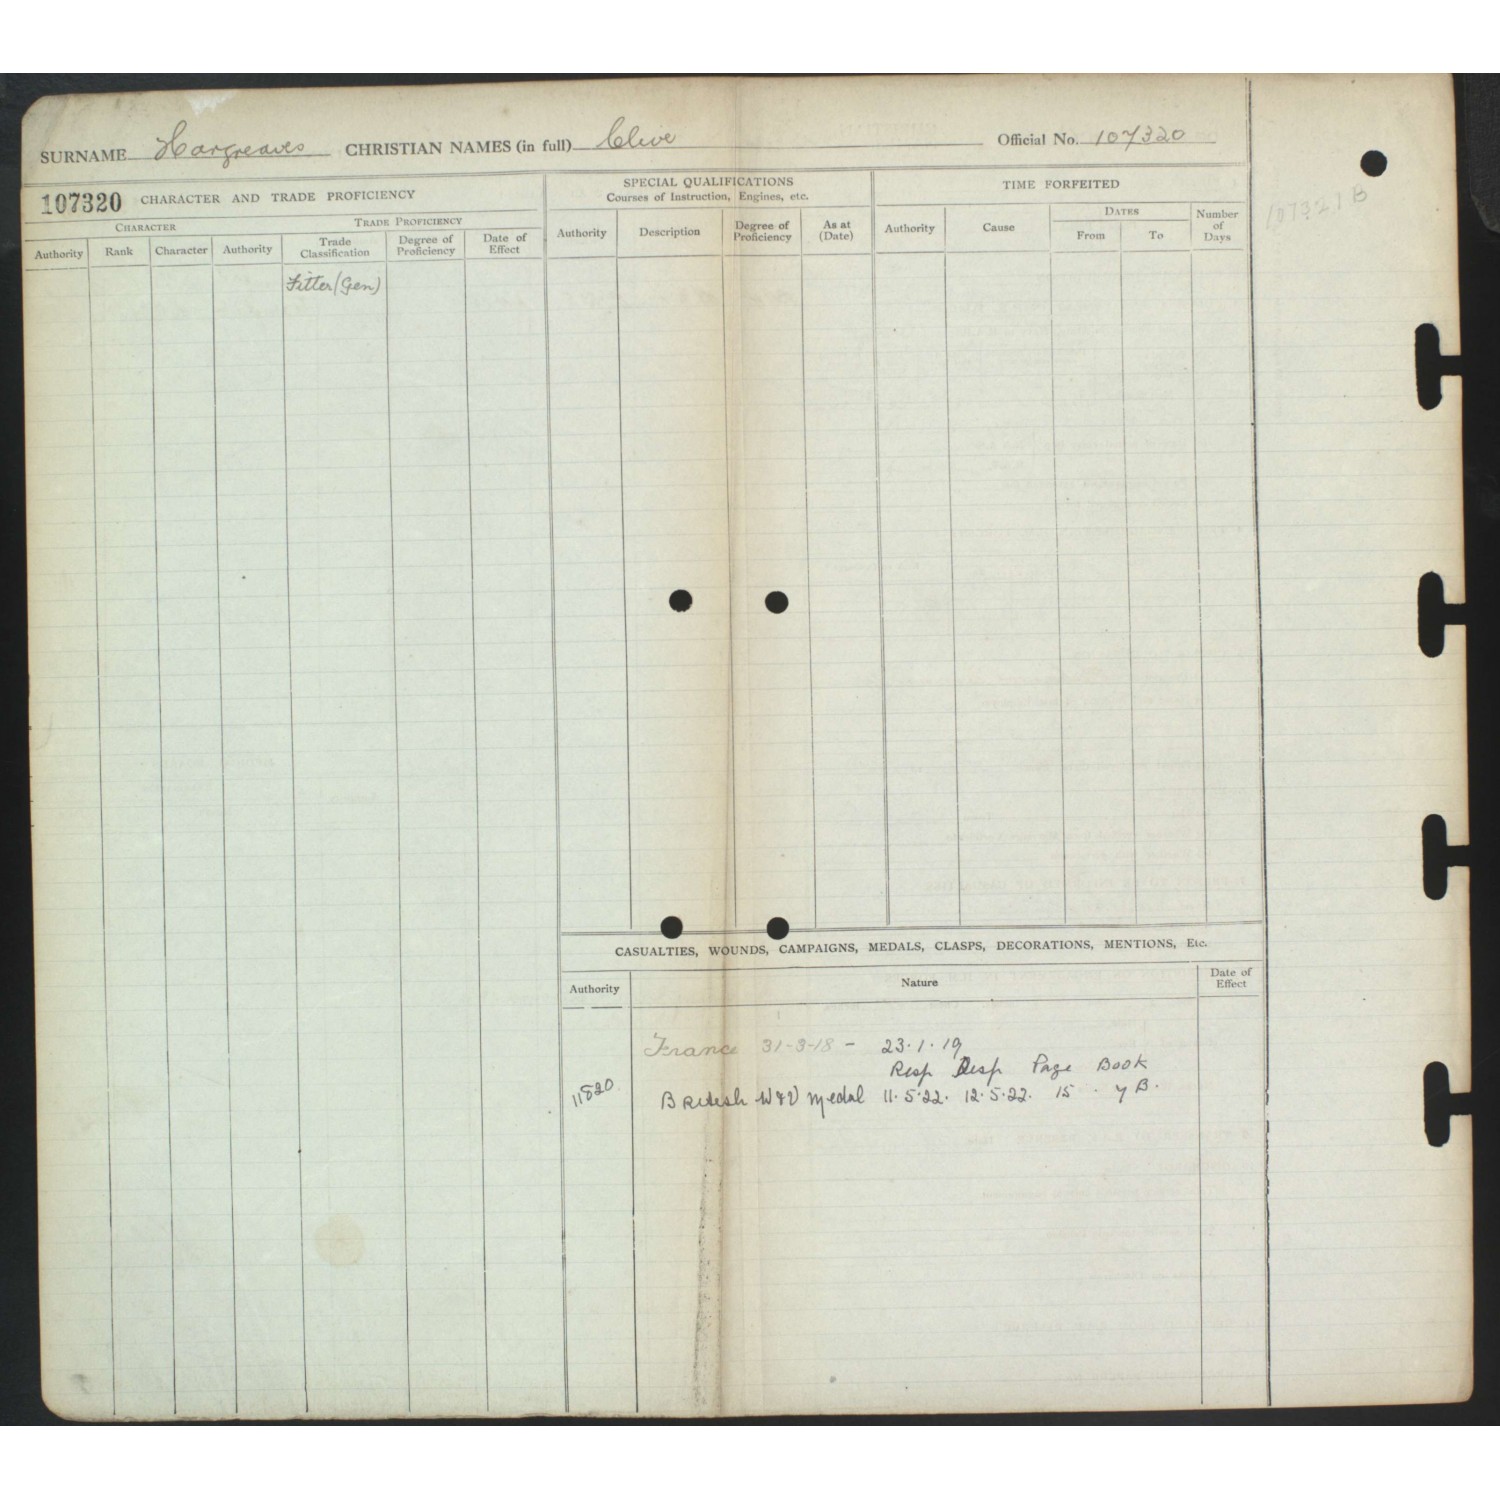 SURNAME Hargreaves CHRISTIAN NAMES (in full) Clive Official No. 107320
107320 CHARACTER AND TRADE PROFICIENCY
CHARACTER TRADE PROFICIENCY
Authority Rank Character Authority Trade Classification Degree of Proficiency Date of Effect
Fitter (Gen)
SPECIAL QUALIFICATIONS
Courses of Instruction, Engines, etc.
Authority Description Degree of Proficiency As at (Date)
TIME FORFEITED
Authority Cause DATES From To Number of Days
107321 B
CASUALTIES, WOUNDS, CAMPAIGNS, MEDALS, CLASPS, DECORATIONS, MENTIONS, Etc.
Authority Nature Date of Effect
France 31-3-18 - 23.1.19
Resp Desp Page Book
11820 British W & V Medal 11.5.22. 12.5.22. 15 . 7B.